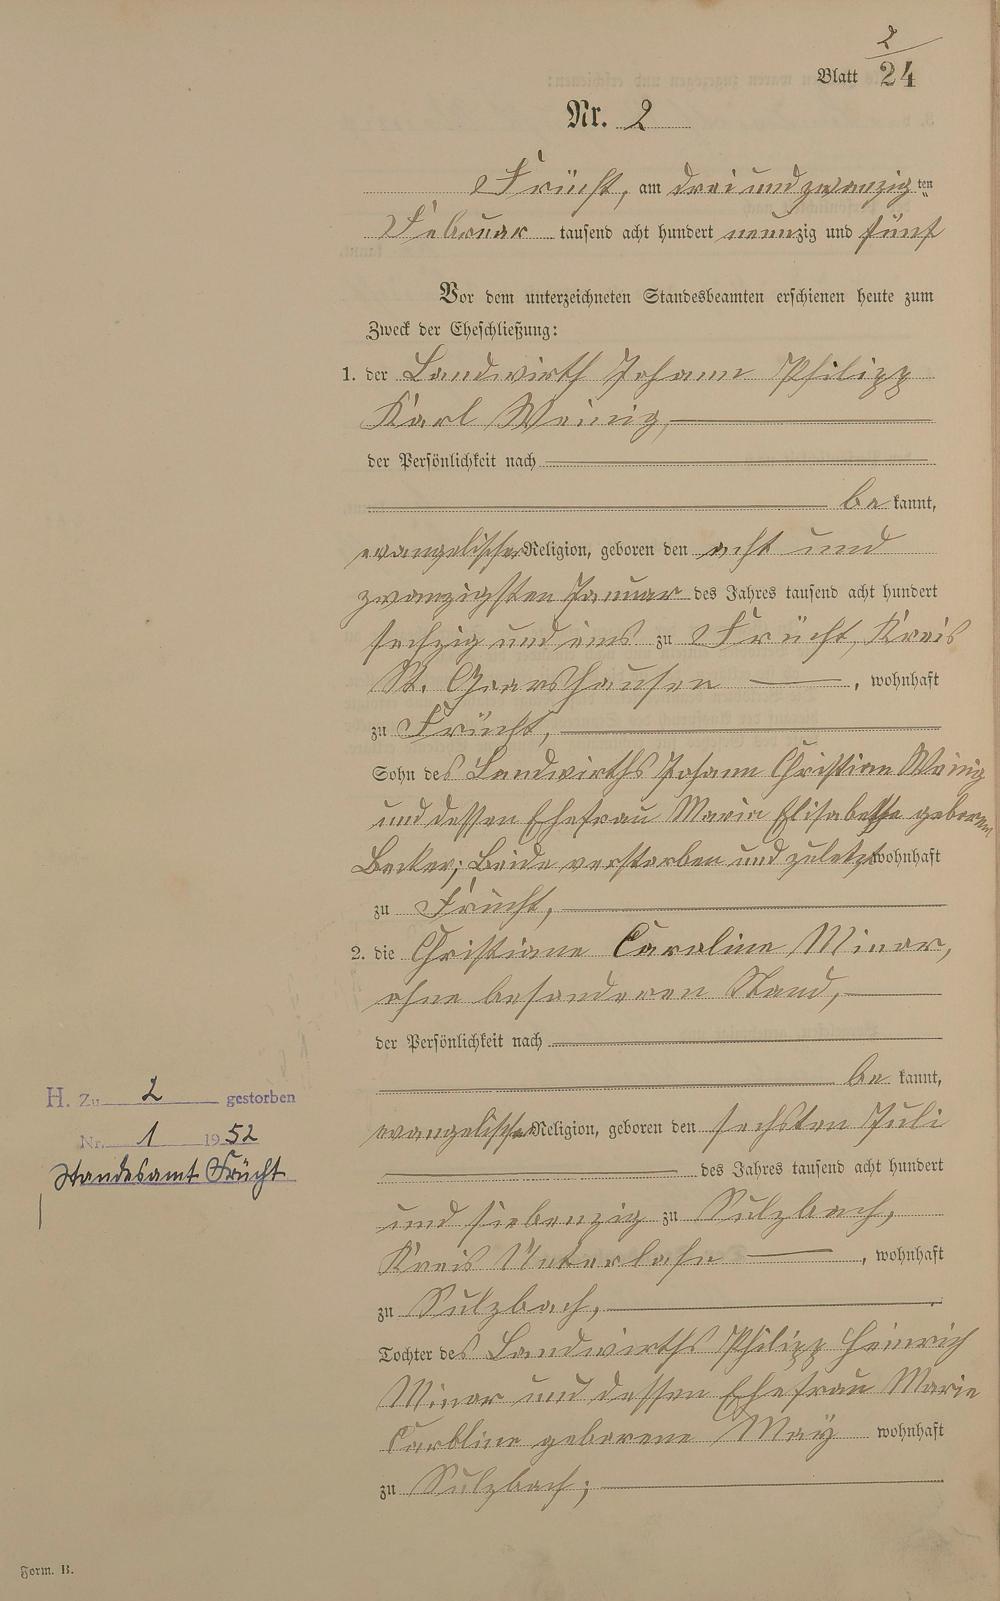 2
Blatt 24
Nr. 2
Frücht, am drei und zwanzig ten
Februar tausend acht hundert neunzig und fünf
Vor dem unterzeichneten Standesbeamten erschienen heute zum
Zweck der Eheschließung:
1. der Landwirth Johann Philipp
Karl Weinig,
der Persönlichkeit nach
be kannt,
evangelischer Religion, geboren den acht und
zwanzigsten Januar des Jahres tausend acht hundert
sechzig und eins zu Frücht, Kreis
St. Goarshausen, wohnhaft
zu Frücht,
Sohn des Landwirths Johann Christian Weinig
und dessen Ehefrau Maria Elisabetha geboren
Becker; Beide verstorben und zuletzt wohnhaft
zu Frücht,
2. die Christiane Caroline Minor,
ohne besonderen Stand,
der Persönlichkeit nach
be kannt,
evangelischer Religion, geboren den sechsten Juli
des Jahres tausend acht hundert
und siebenzig zu Sulzbach,
Kreis Unterlahn, wohnhaft
zu Sulzbach,
Tochter des Landwirths Philipp Heinrich
Minor und dessen Ehefrau Marie
Caroline geborene May wohnhaft
zu Sulzbach;
H. Zu 2 gestorben
Nr. 1 1952
Standesamt Frücht
Form. B.